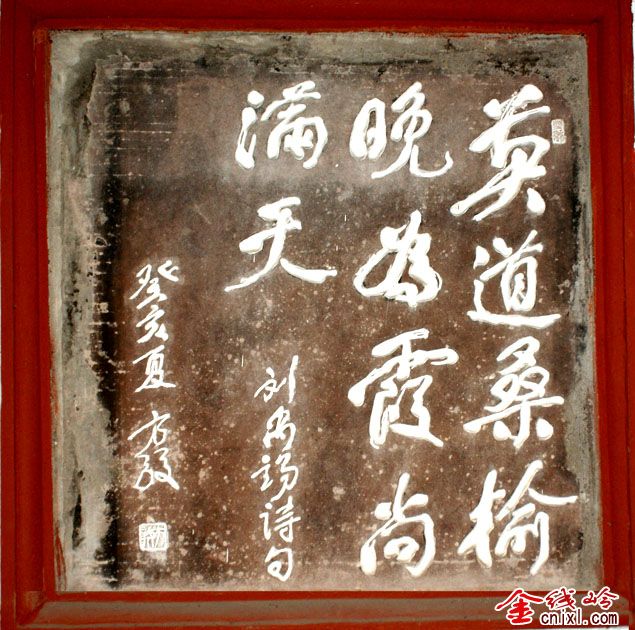 莫道桑榆
晚為霞尚
滿天
刘禹锡詩句
癸亥夏 方毅
金线岭
cnixl.com